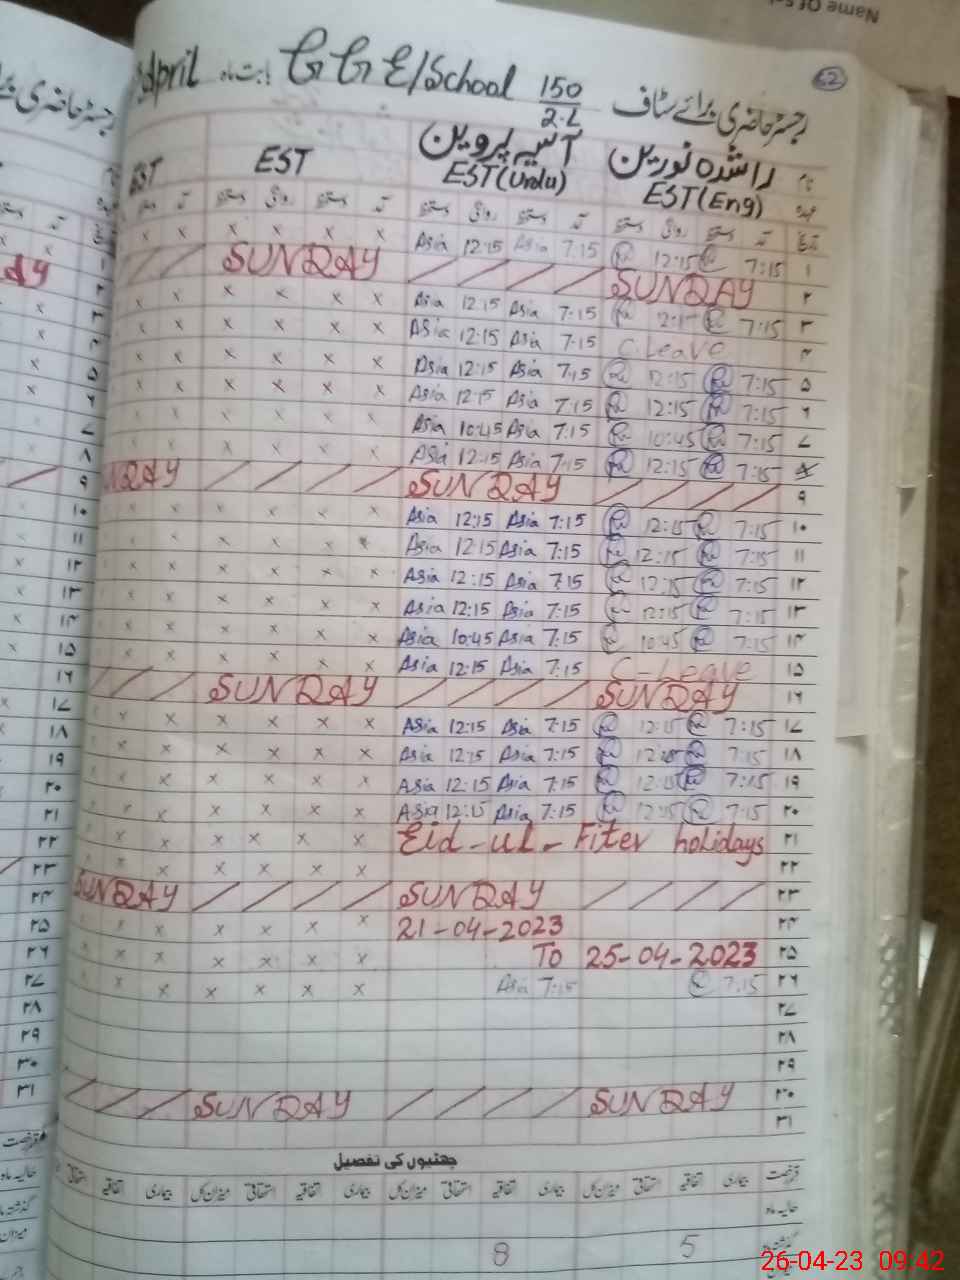 Name Of
62
رجسٹر حاضری برائے سٹاف GGE/School 150/2.L بابت ماہ April
راشدہ نورین آسیہ پروین
EST(Eng) EST(Urdu) EST EST
Asia 12:15 Asia 7:15 12:15 7:15 ۱
SUNDAY SUNDAY ۲
Asia 12:15 Asia 7:15 7:15 ۳
Asia 12:15 Asia 7:15 C.Leave ۴
Asia 12:15 Asia 7:15 12:15 7:15 ۵
Asia 12:15 Asia 7:15 12:15 7:15 ۶
Asia 10:45 Asia 7:15 10:45 7:15 ۷
Asia 12:15 Asia 7:15 12:15 7:15 ۸
SUNDAY SUNDAY ۹
Asia 12:15 Asia 7:15 12:15 7:15 ۱۰
Asia 12:15 Asia 7:15 12:15 7:15 ۱۱
Asia 12:15 Asia 7:15 12:15 7:15 ۱۲
Asia 12:15 Asia 7:15 12:15 7:15 ۱۳
Asia 10:45 Asia 7:15 10:45 7:15 ۱۴
Asia 12:15 Asia 7:15 C-Leave ۱۵
SUNDAY SUNDAY ۱۶
Asia 12:15 Asia 7:15 12:15 7:15 ۱۷
Asia 12:15 Asia 7:15 12:15 7:15 ۱۸
Asia 12:15 Asia 7:15 12:15 7:15 ۱۹
Asia 12:15 Asia 7:15 12:15 7:15 ۲۰
Eid-ul-Fiter holidays ۲۱
۲۲
SUNDAY SUNDAY ۲۳
21-04-2023 ۲۴
To 25-04-2023 ۲۵
Asia 7:15 7:15 ۲۶
۲۷
۲۸
۲۹
SUNDAY SUNDAY ۳۰
۳۱
چھٹیوں کی تفصیل
قسم رخصت بیماری اتفاقیہ استحقاقی میزان کل بیماری اتفاقیہ استحقاقی میزان کل بیماری اتفاقیہ استحقاقی میزان کل بیماری اتفاقیہ استحقاقی
حالیہ ماہ
5 8
26-04-23 09:42